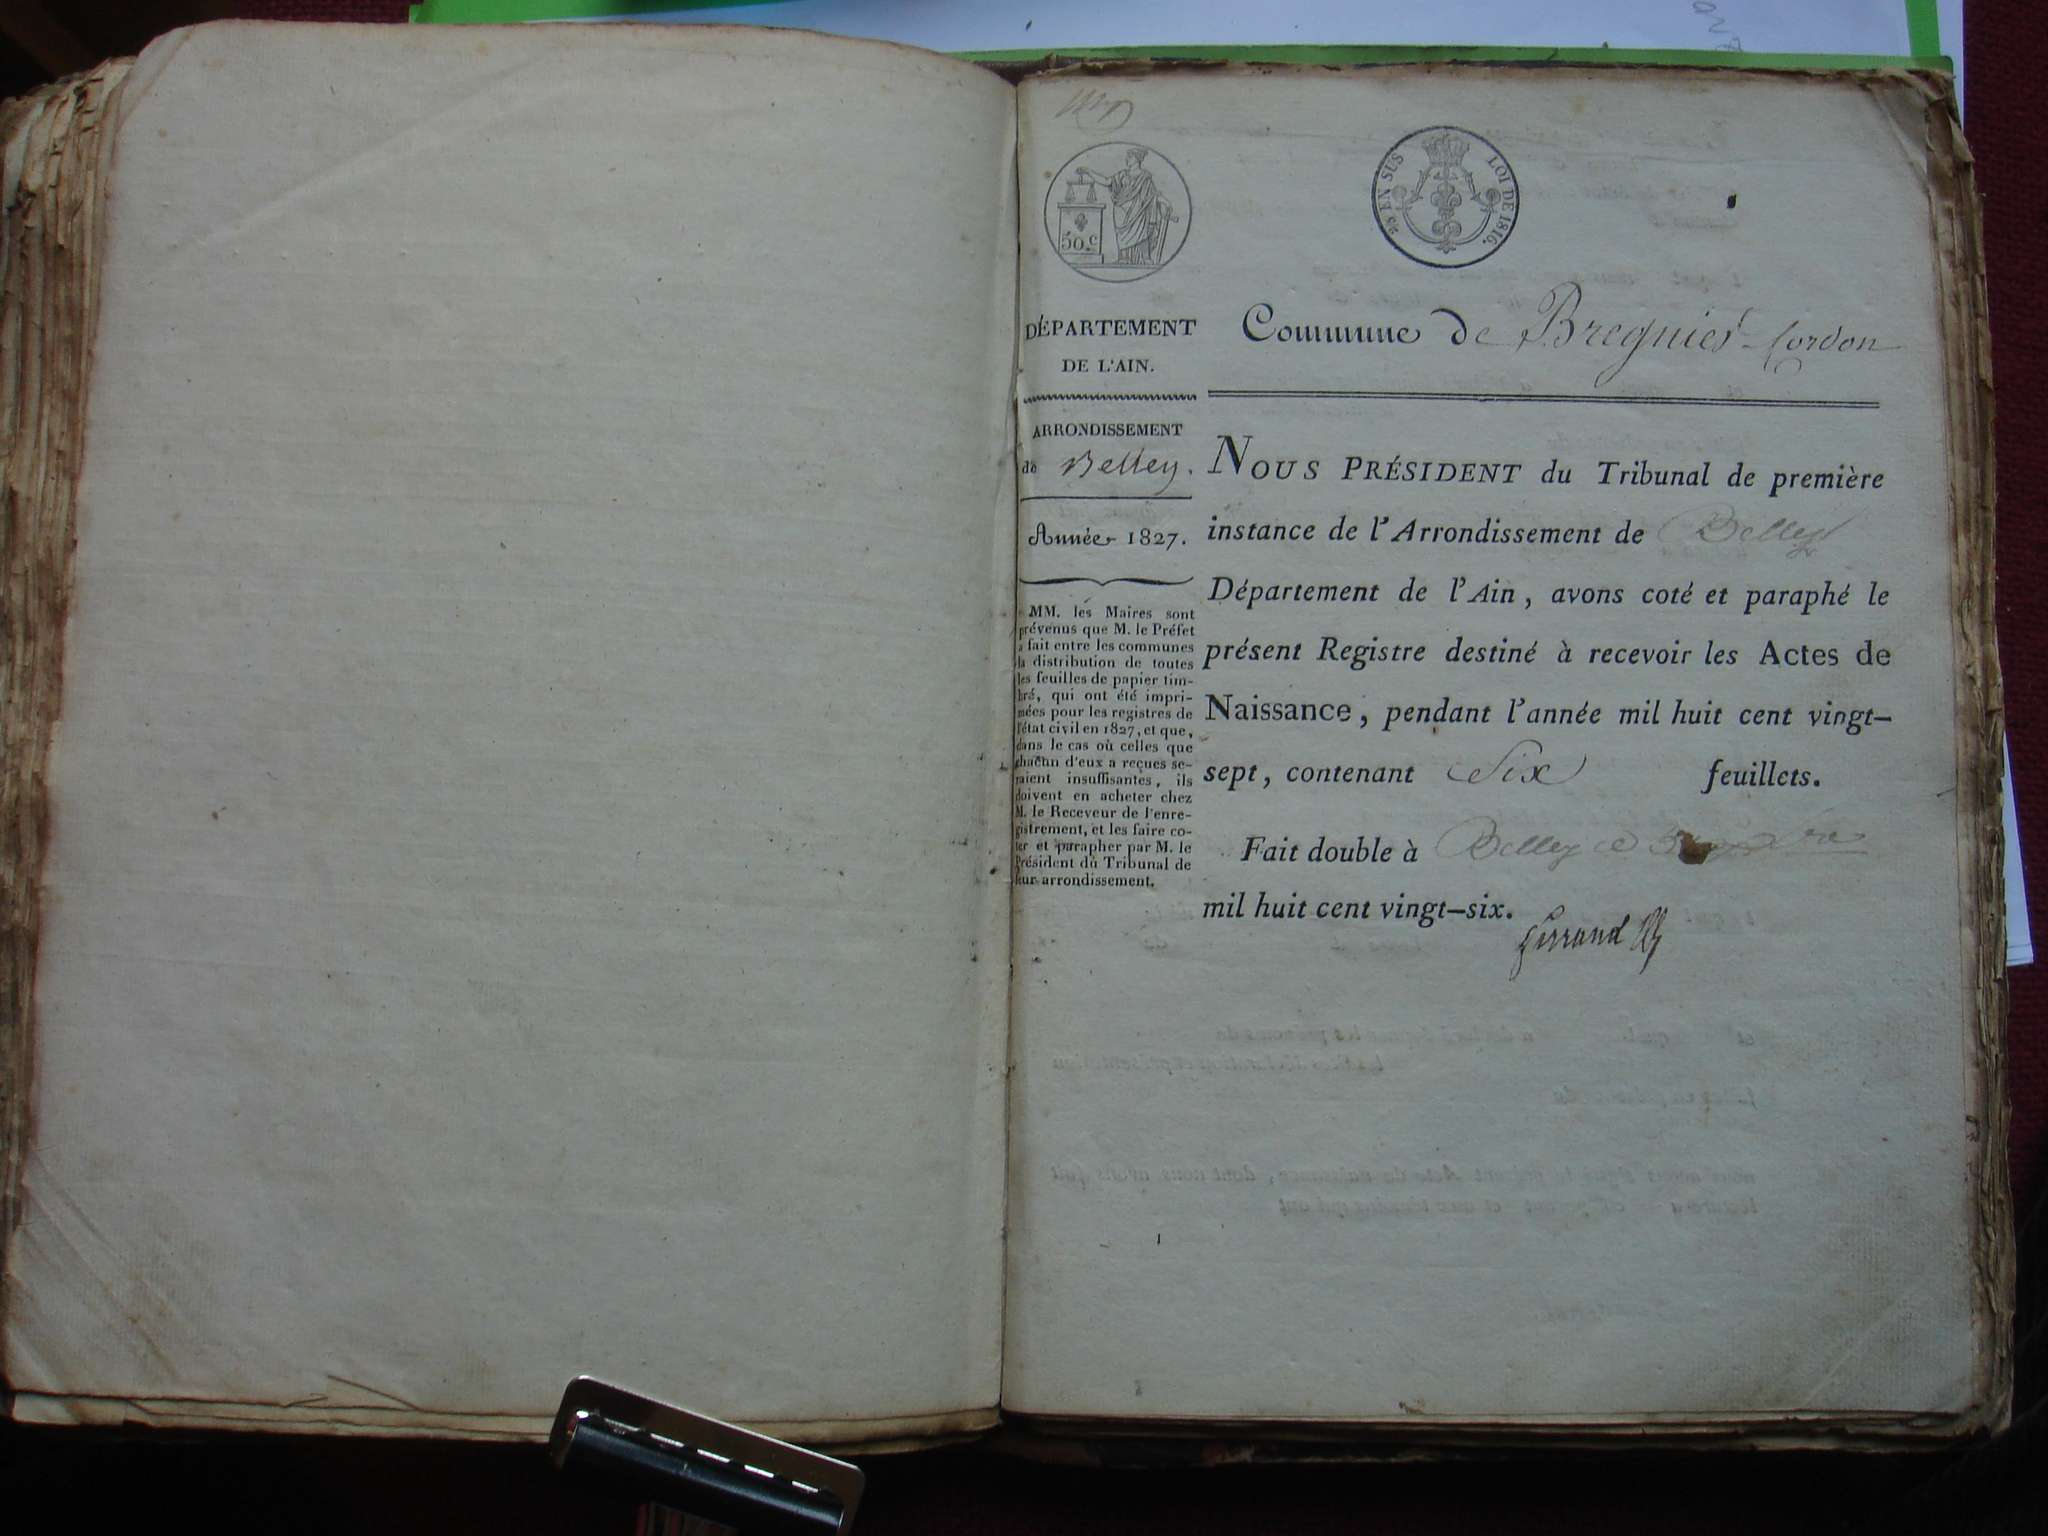 50.c
EN SUS LOI DE 1816.
DÉPARTEMENT
DE L'AIN.
ARRONDISSEMENT
de Belley.
Année 1827.
MM. les Maires sont
prévenus que M. le Préfet
a fait entre les communes
la distribution de toutes
les feuilles de papier tim-
bré, qui ont été impri-
mées pour les registres de
l'état civil en 1827, et que,
dans le cas où celles que
chacun d'eux a reçues se-
raient insuffisantes, ils
doivent en acheter chez
M. le Receveur de l'enre-
gistrement, et les faire co-
ter et parapher par M. le
Président du Tribunal de
leur arrondissement.
Commune de Bregnier-Cordon
NOUS PRÉSIDENT du Tribunal de première
instance de l'Arrondissement de Belley
Département de l'Ain, avons coté et paraphé le
présent Registre destiné à recevoir les Actes de
Naissance, pendant l'année mil huit cent vingt-
sept, contenant Six feuillets.
Fait double à Belley ce
mil huit cent vingt-six.